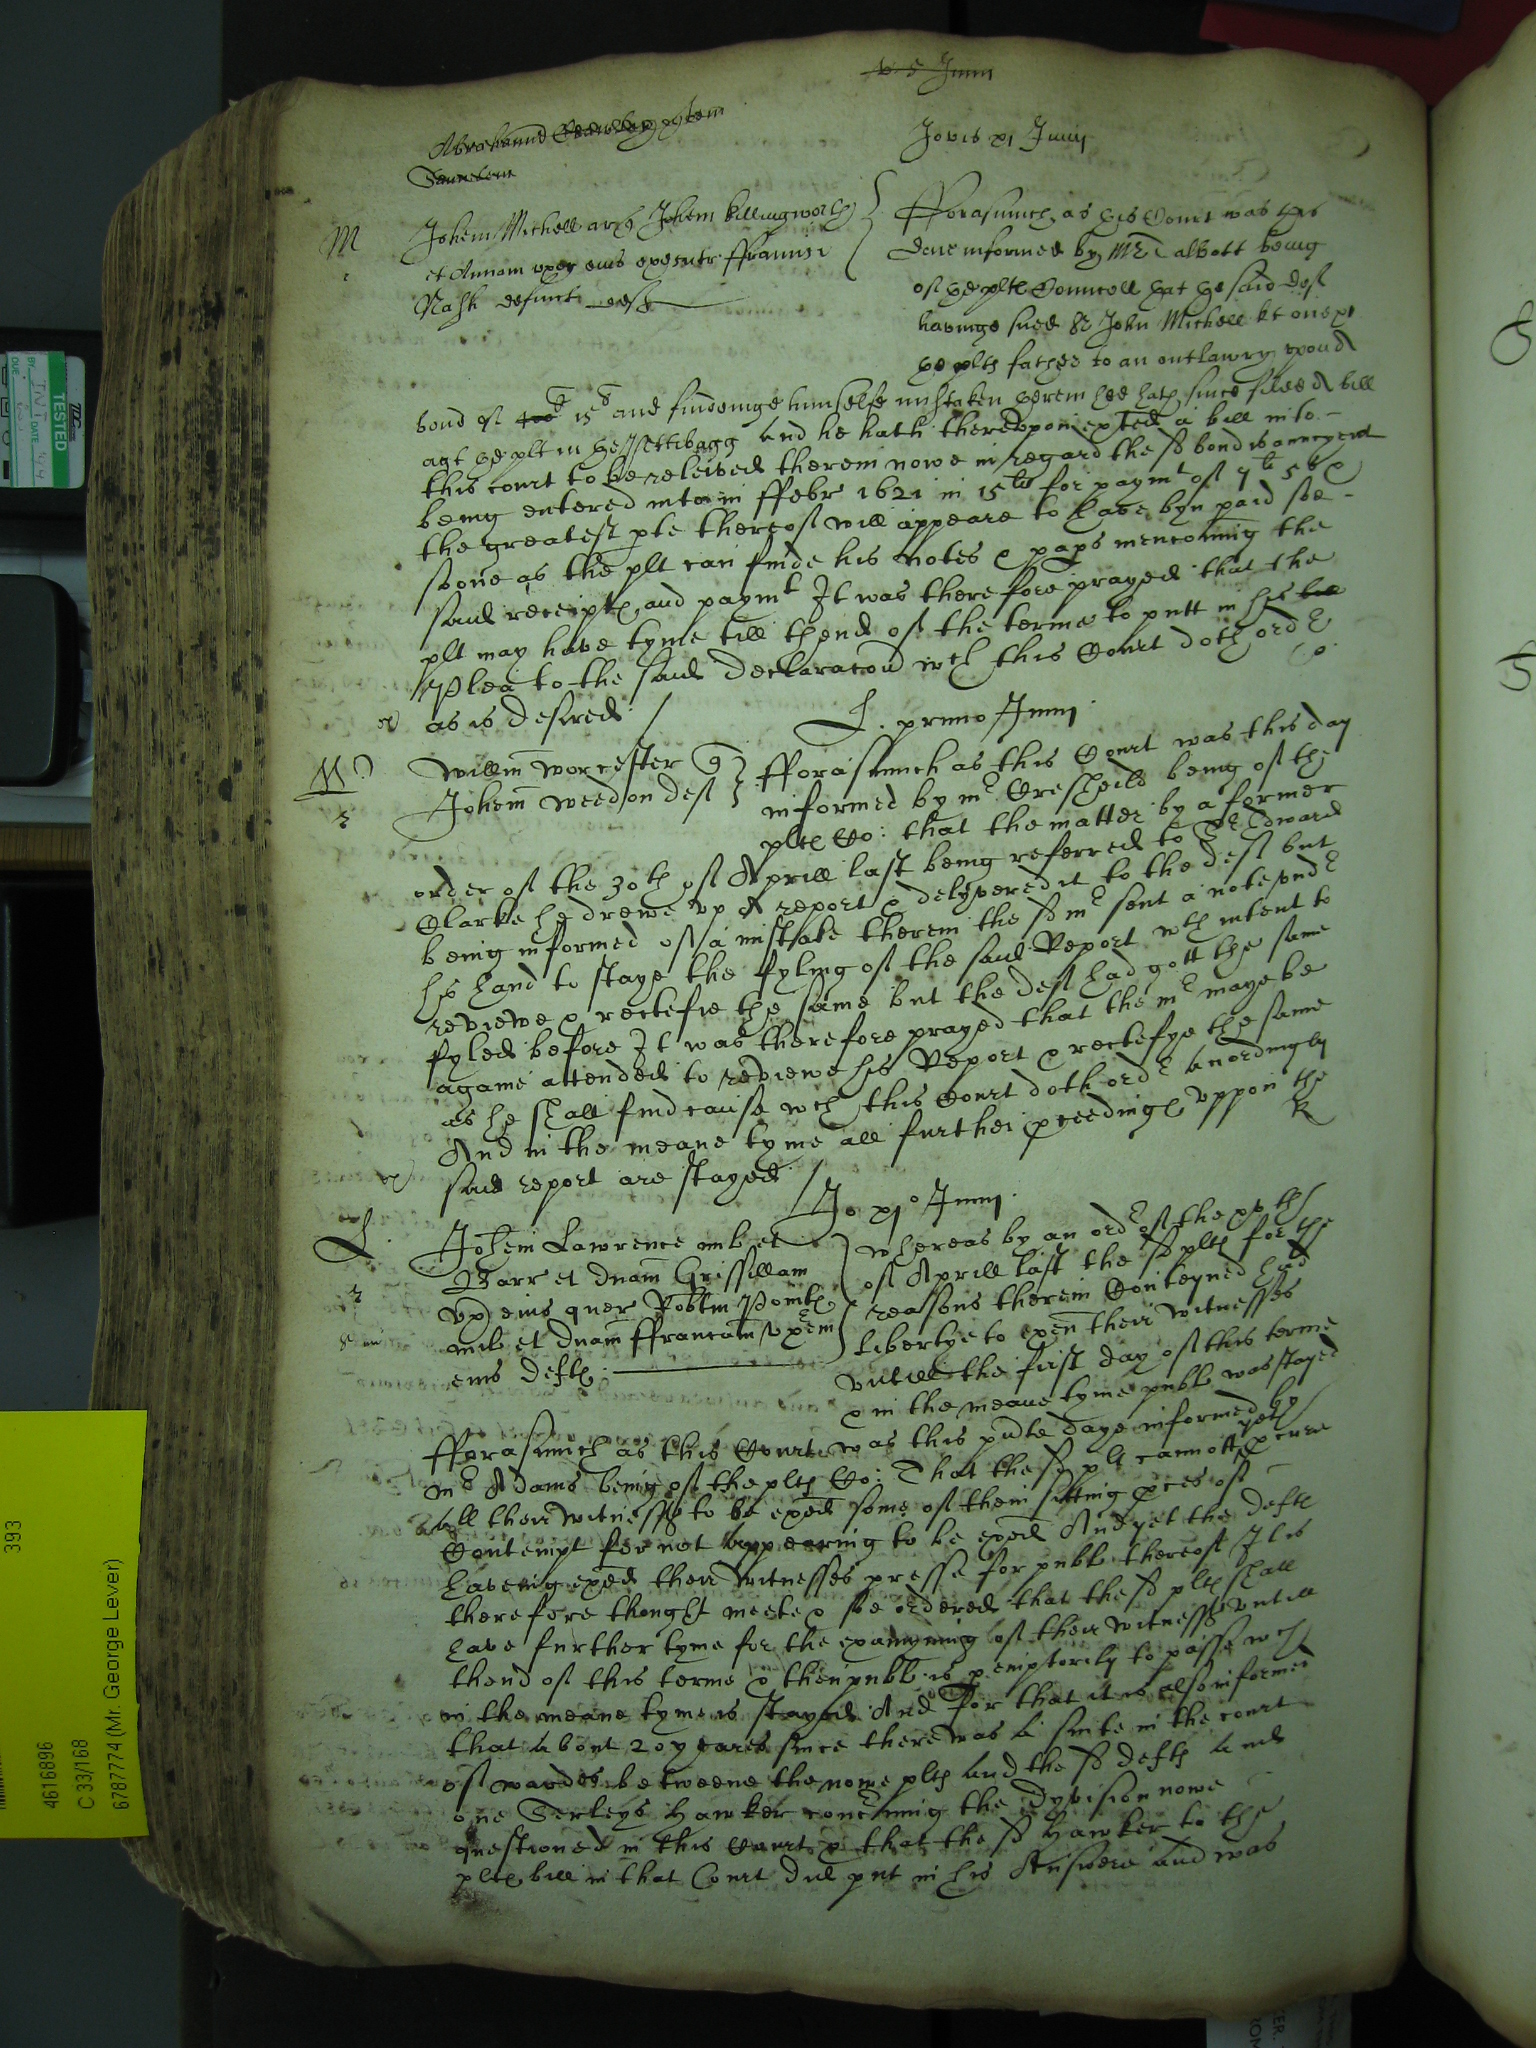 v d Junij
Jovis xj Junij
M
Johem Michell ar q Johem killingworth
et Annam uxor eius executr ffrancisi
Nash defunct defh
fforasmuch as this Court was this
daie informed by Mr Talbott being
of the plts Councell that the said deft
havinge sued Sr John Michell kt
the plts father to an outlawry upon A
bond of 15 and findeinge himselfe mistaken therein hee hath since filed A bill
agt the plt in the Pettibagg And he hath thereupon exted a bill into
this court to be releived therein nowe in regard the sd bond is auncyent
being entered into in ffebr 1621 in 15li for paymt of 7li 5s &
the greatest pte thereof will appeare to have byn paid soe
soone as the plt can finde his notes & paps mencoining the
said receipts and paymt It was therefore prayed that the
plt may have tyme till thend of the terme to putt in his
Plea to the said Declaracon wch this Court doth ordr
as is desired
L. primo Junij
M
Willm Worcester q
Johem Weedon deft
fforasmuch as this Court was this day
informed by mr Cresheld being of the
plts Co: that the matter by a former
order of the 30th of Aprill last being referred to Sr Edward
Clarke he drewe up A report & delyvered it to the deft but
being informed of a mistake therein the sd mr sent a note undr
his hand to staye the fyling of the said Report wth intent to
reviewe & rectefie the same but the deft had gott the same
fyled before It was therefore prayed that the mr maye be
againe attended to reviewe his Report & rectefye the same
as he shall find cause wch this Court doth ordr accordingly
And in the meane tyme all further pceedings uppon the
said report are stayed
R
Jo xjo Junij
L.
Johem Lawrence mil et
Barr et dnam Grissillam
ux eius quer Robtm Pointz
mil et dnam ffrancam uxrem
eius defts
whereas by an ordr of the xxth
of Aprill last the sd plts for the
reasons therein Conteyned had
libertye to exen their witnesses
untill the first day of this terme
& in the meane tyme publ was stayed
fforasmuch as this Court was this pnte daye informed by
mr Adams being of the plts Co: That the sd plt cannott yett pcure
all their witnesses to be exed some of them sitting pces of
Contempt for not appearing to be exed And yet the defts
haveing exed their Witnesses presse for publ thereof It is
therefore thought meete & soe ordered that the sd plts shall
have further tyme for the examyning of their witnesses untill
thend of this terme & then publ is pemptorily to passe wch
in the meane tyme is stayed And for that it is also informed
that about 20 yeares since there was A suite in the court
of wardes betweene the nowe plts and the sd defts and
one Serleys Hawker concning the Dyvision nowe
questioned in this Court & that the sd Hawker to the
plts bill in that Court did put in his Answere and was
393
4616896
C 33/168
6787774 (Mr. George Lever)
TESTED